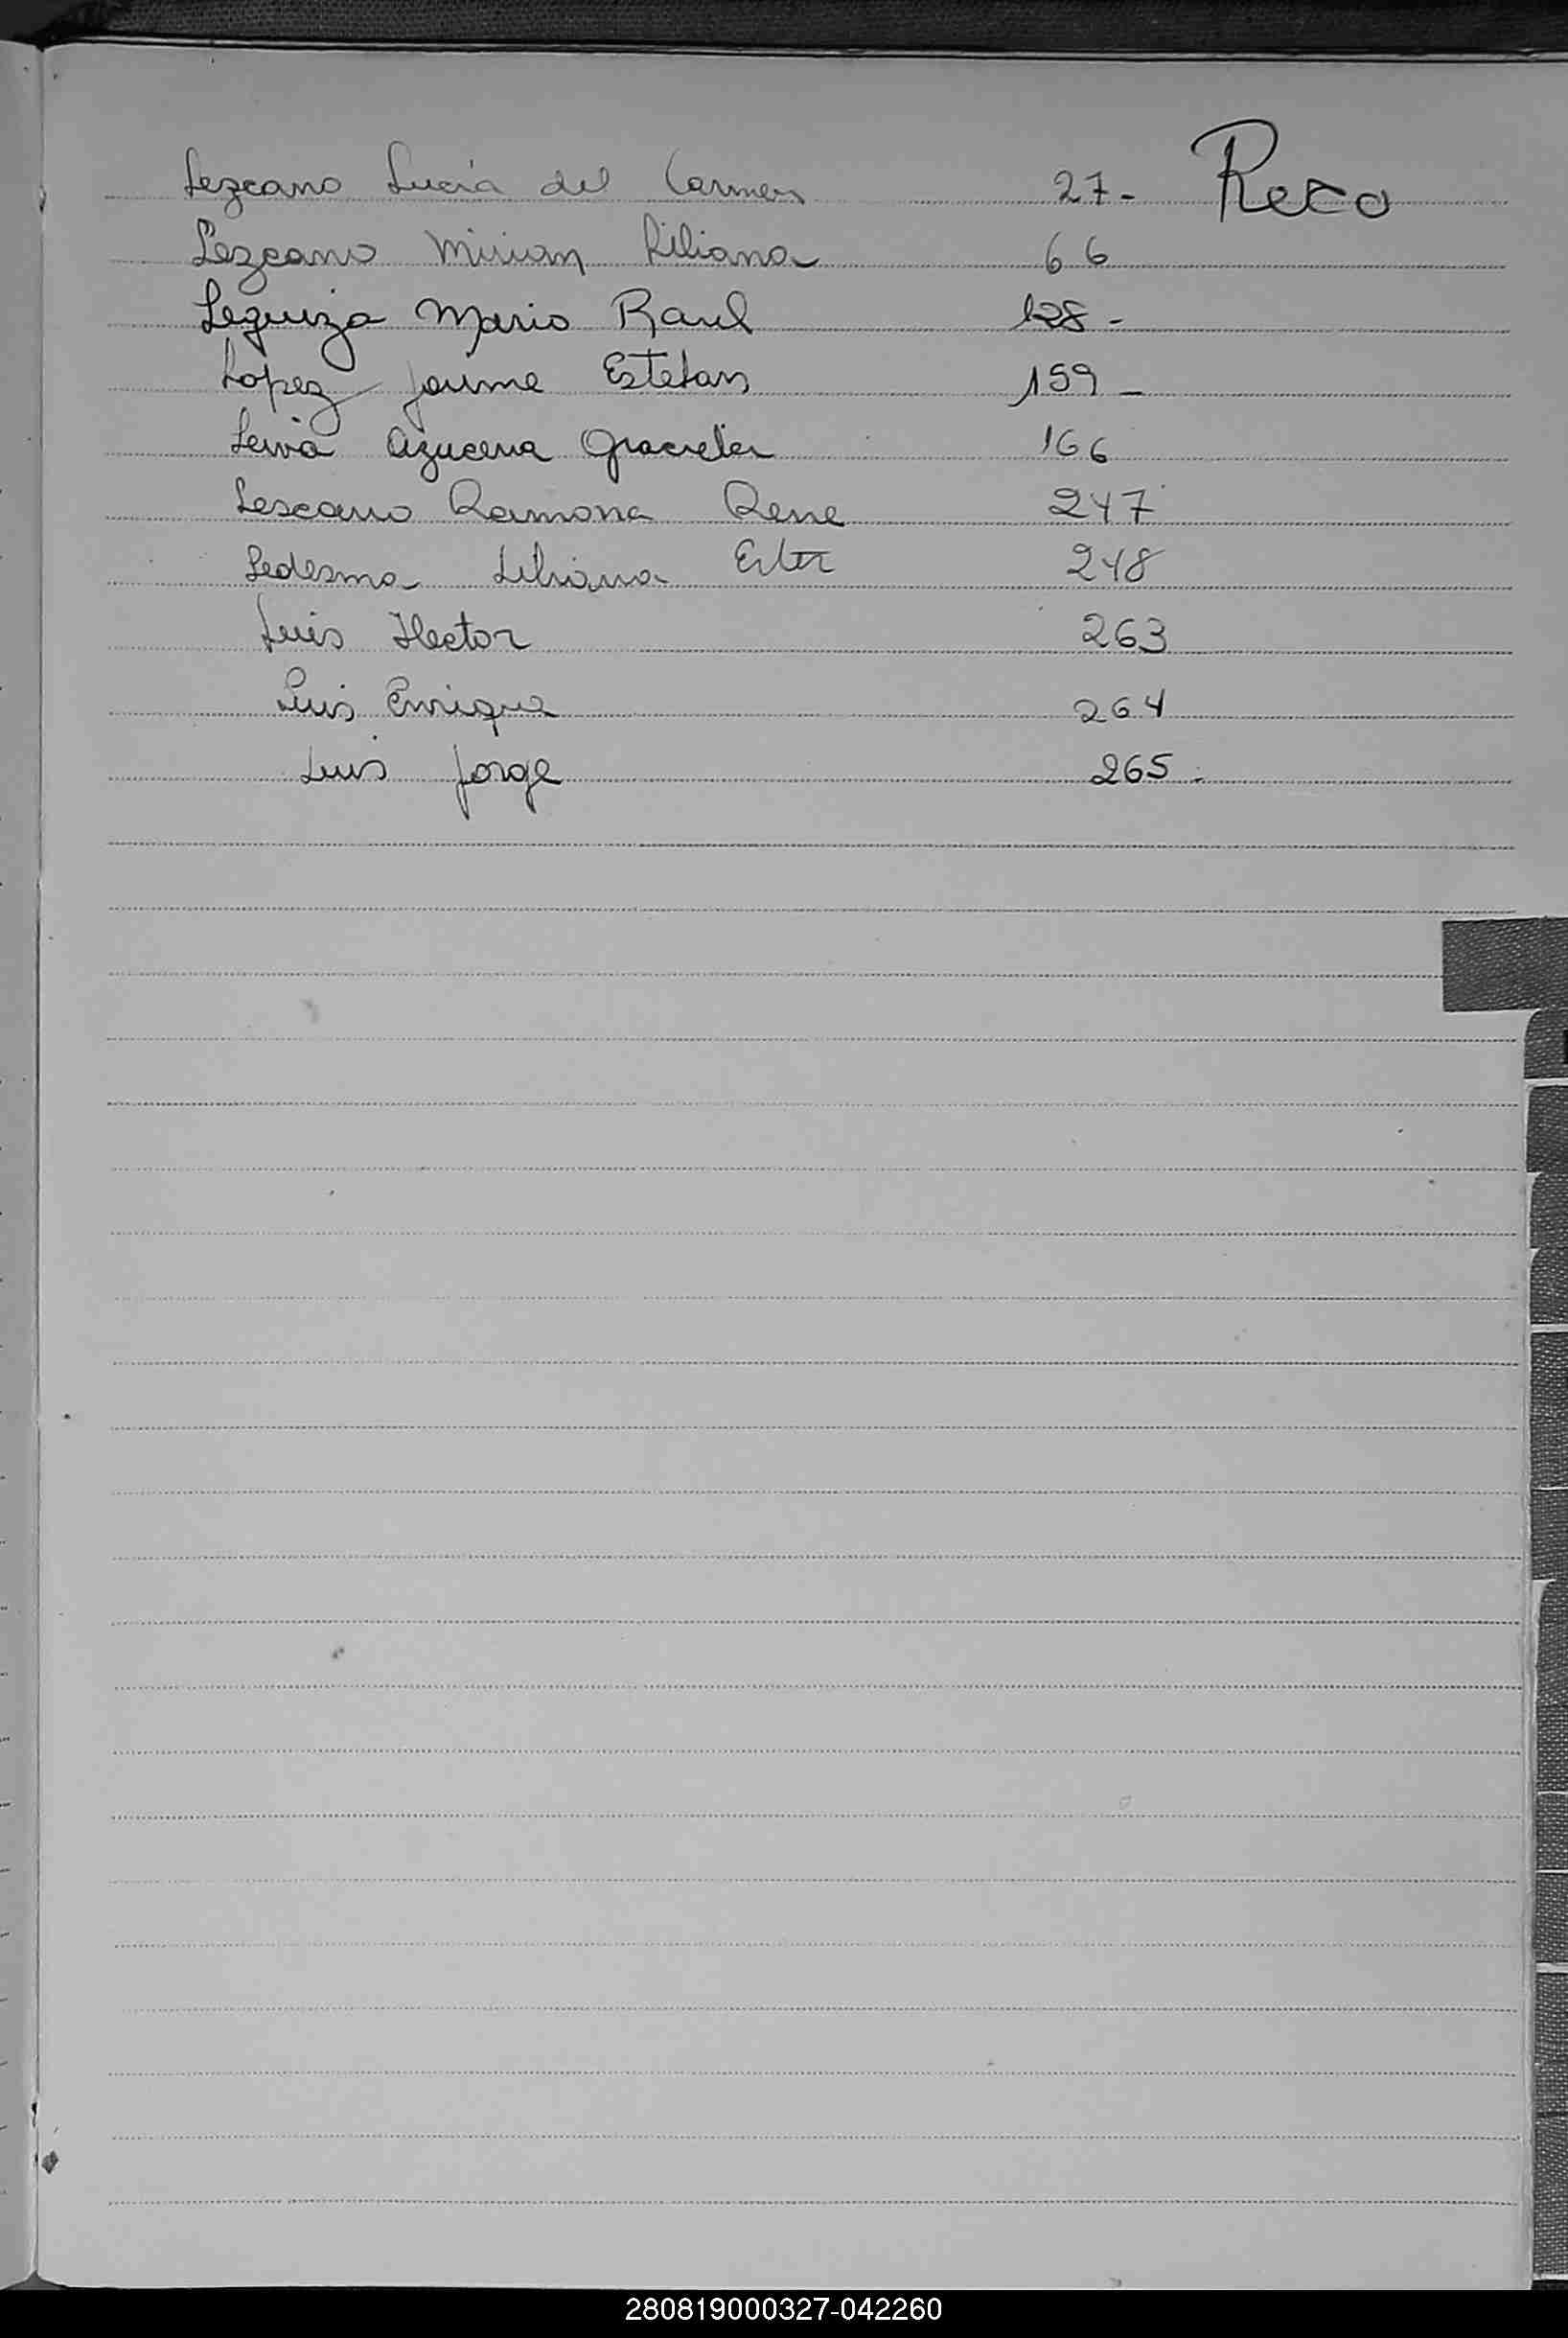 Lezcano Lucia del Carmen 27- Reco
Lezcano Mirian Liliana 66
Leguiza Mario Raul 128-
Lopez Jaime Esteban 159-
Leiva Azucena Graciela 166
Lescano Ramona Rene 247
Ledesma Liliana Ester 248
Luis Hector 263
Luis Enrique 264
Luis Jorge 265-
280819000327-042260